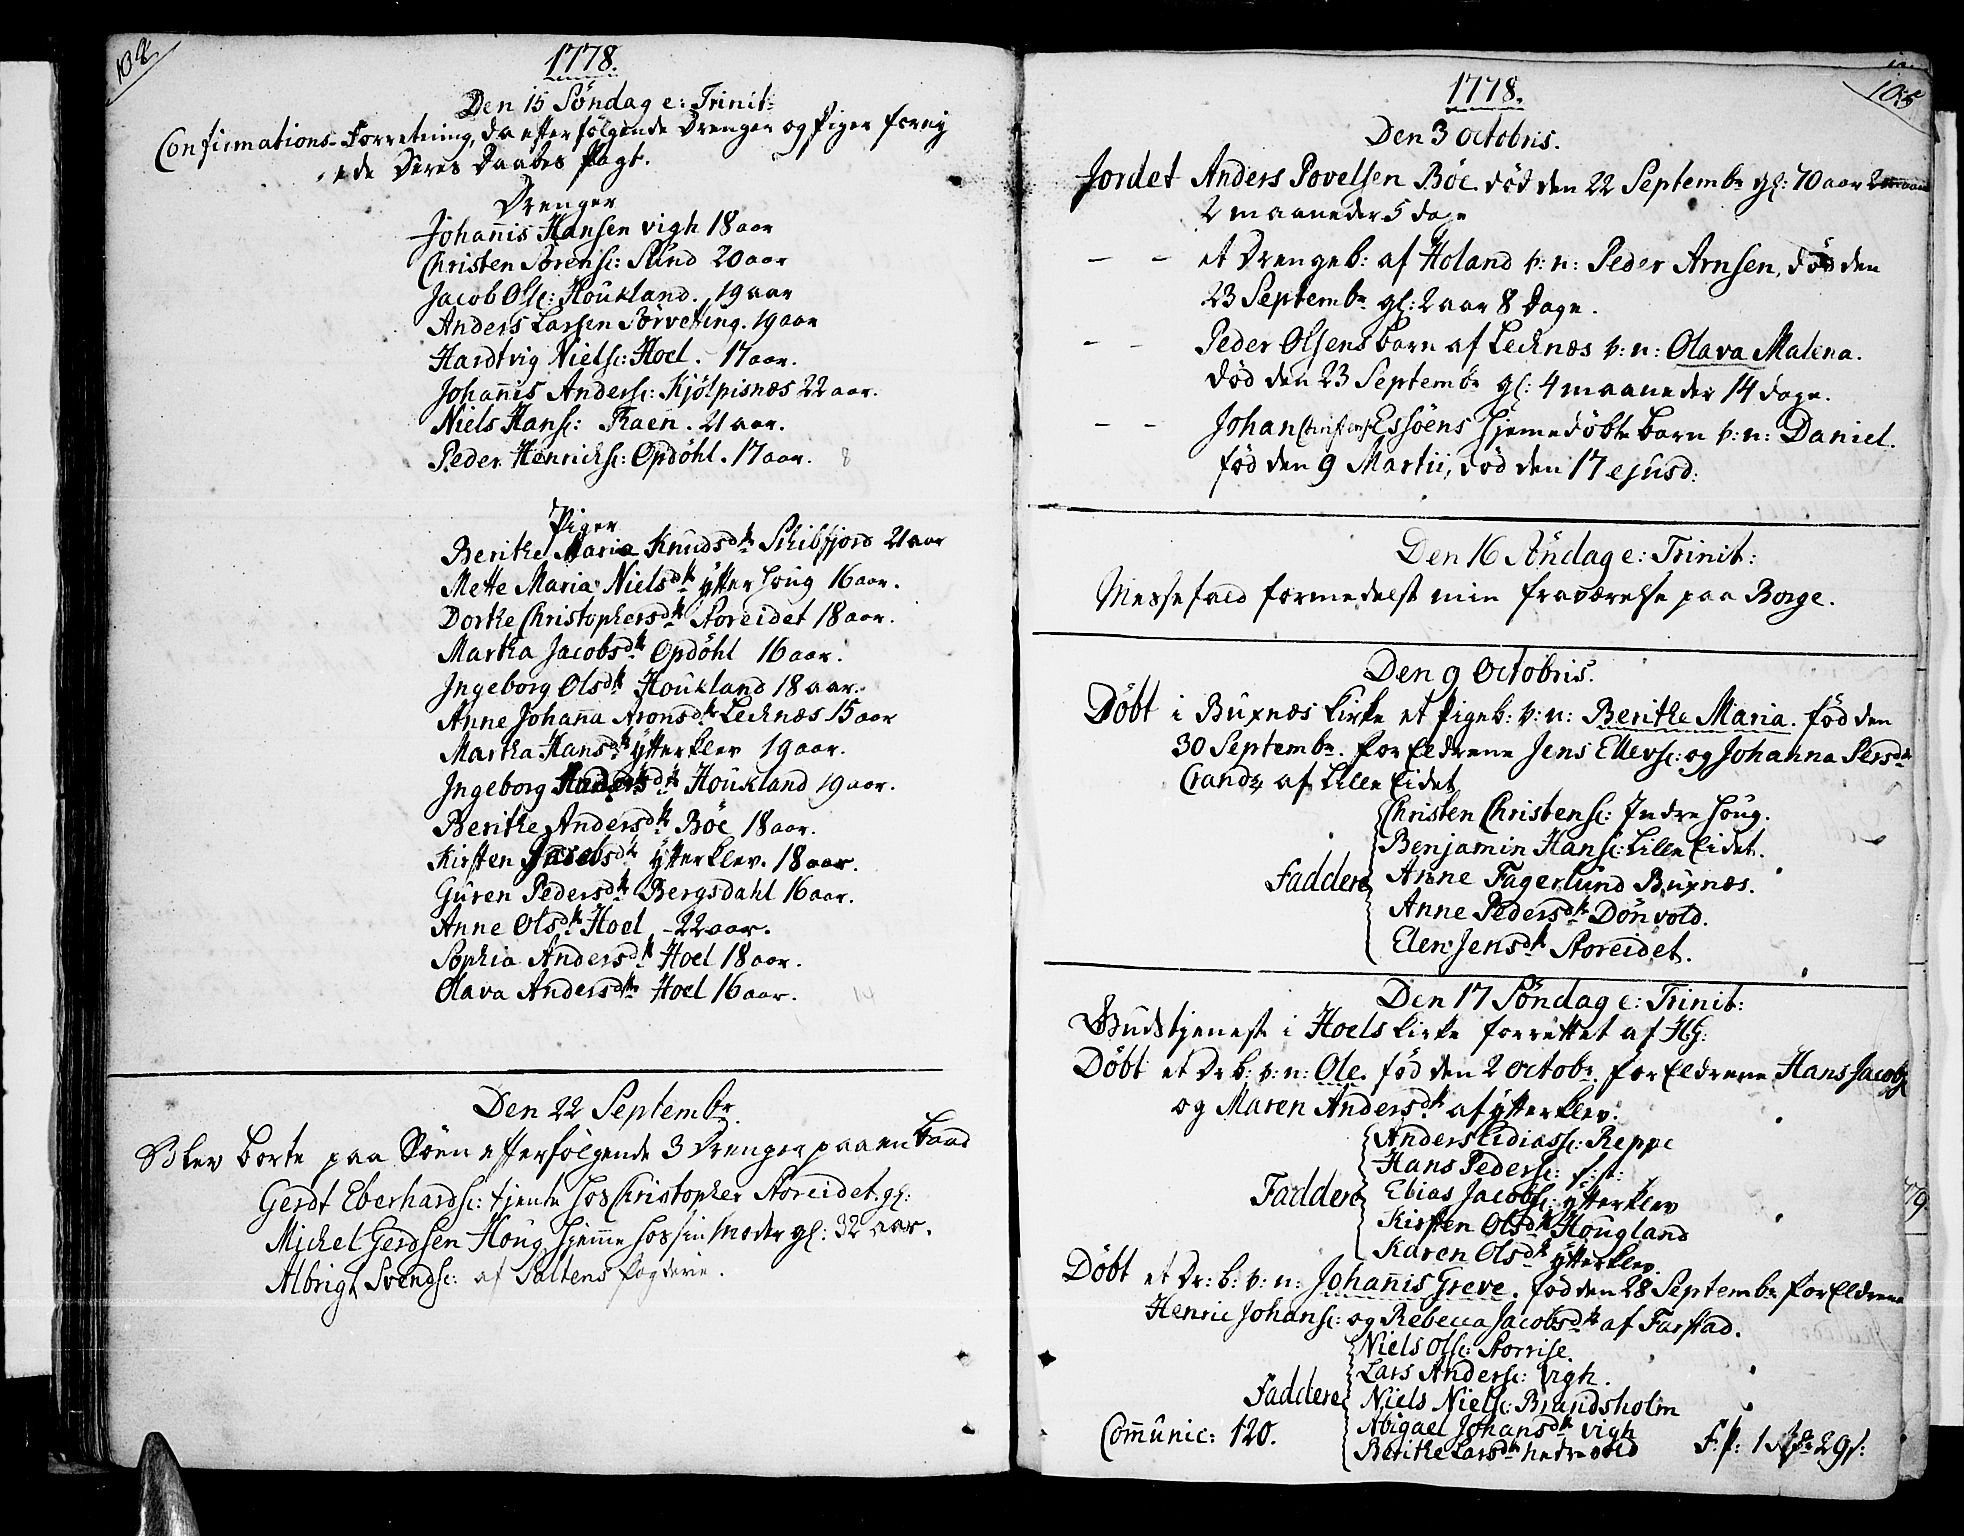 104
1778.
Den 15 Söndag e: Trinit:
Confirmations-Forretning, da efterfölgende Drenger og Piger forny
ede Deres Daabes Pagt.
Drenger
Johannis Hansen vigh 18 aar
Christen Sörens: Sund 20 aar
Jacob Ols: Houkland. 19 aar
Anders Larsen Sörvefing. 19 aar
Hardtvig Niels: Hoel. 17 aar.
Johannis Anders: Kjölpisnæs 22 aar.
Niels Hans: Træen. 21 aar.
Peder Henrichs: Opdöhl. 17 aar. 8
Piger
Berithe Maria Knudsdtr Schibfjord 21 aar
Mette Maria Nielsdtr ÿtterhoug 16 aar.
Dorthe Christophersdtr Storeidet 18 aar.
Martha Jacobsdtr Opdöhl 16 aar.
Ingeborg Olsdtr Houkland 18 aar.
Anne Johanna Aronsdtr Lecknæs 15 aar
Martha Hansdtr ÿtterklev 19 aar.
Ingeborg Andersdtr Houkland 19 aar.
Berithe Andersdtr Böe 18 aar.
Kirsten Jacobsdtr ÿtterklev. 18 aar.
Guren Pedersdtr Bergsdahl 16 aar.
Anne Olsdtr Hoel 22 aar.
Sophia Andersdtr Hoel 18 aar.
Olava Andersdtr Hoel 16 aar. 14
Den 22 Septembr.
Blev borte paa Söen efterfölgende 3 Drenger paa en Baad
Gerdt Eberhards: tjente hos Christopher Storeidet. gl:
Michel Gerdsen Houg hjemme hos sin Moder gl: 32 aar.
Albrigt Svends: af Saltens fogderie.
105
1778.
Den 3 Octobris.
Jordet Anders Povelsen Böe död den 22 Septembr gl: 70 aar
2 maaneder 5 dage
— — et Drengeb: af Holand v: n: Peder Arnsen, död den
23 Septembr gl: 2 aar 8 Dage.
— — Peder Olsens barn af Lecknæs v: n: Olava Malena.
död den 23 Septembr gl: 4 maaneder 14 dage.
— — Johan Christens: Essöens hjemedöbte barn v: n: Daniel.
föd den 9 Martii, död den 17 ejusd:
Den 16 Söndag e: Trinit:
Messefald formedelst min fraværelse paa Borge.
Den 9 Octobris.
Döbt i Buxnæs Kirke et Pigeb: v: n: Berithe Maria. föd den
30 Septembr. forEldrene Jens Ellevs: og Johanna Persdtr
af Lille Eidet
Christen Christens: Indre houg.
Benjamin Hans: Lille Eidet.
Faddere Anne Fagerlund Buxnæs.
Anne Pedersdtr Dönvold.
Elen Jensdtr Storeidet.
Den 17 Söndag e: Trinit:
Gudstjeneste i Hoels Kirke forrettet af
Döbt et Dr b: v: n: Ole. föd den 2 Octobr. forEldrene Hans Jacobs:
og Maren Andersdtr af ÿtterklev.
Anders Eliass: Reppe
Hans Peders:
Faddere Ebias Jacobs: ÿtterklev
Kirsten Olsdtr Hougland
Karen Olsdtr ÿtterklev.
Döbt et Dr: b: v: n: Johannis Greve. föd den 28 Septembr forEldrene
Henric Johans: og Rebecca Jacobsdtr af Farstad.
Niels Ols: Storrise.
Lars Anders: vigh.
Faddere Niels Niels: Brandsholm
Abigael Johansdtr vigh
Berithe Larsdtr nedrevold
Communic: 120.